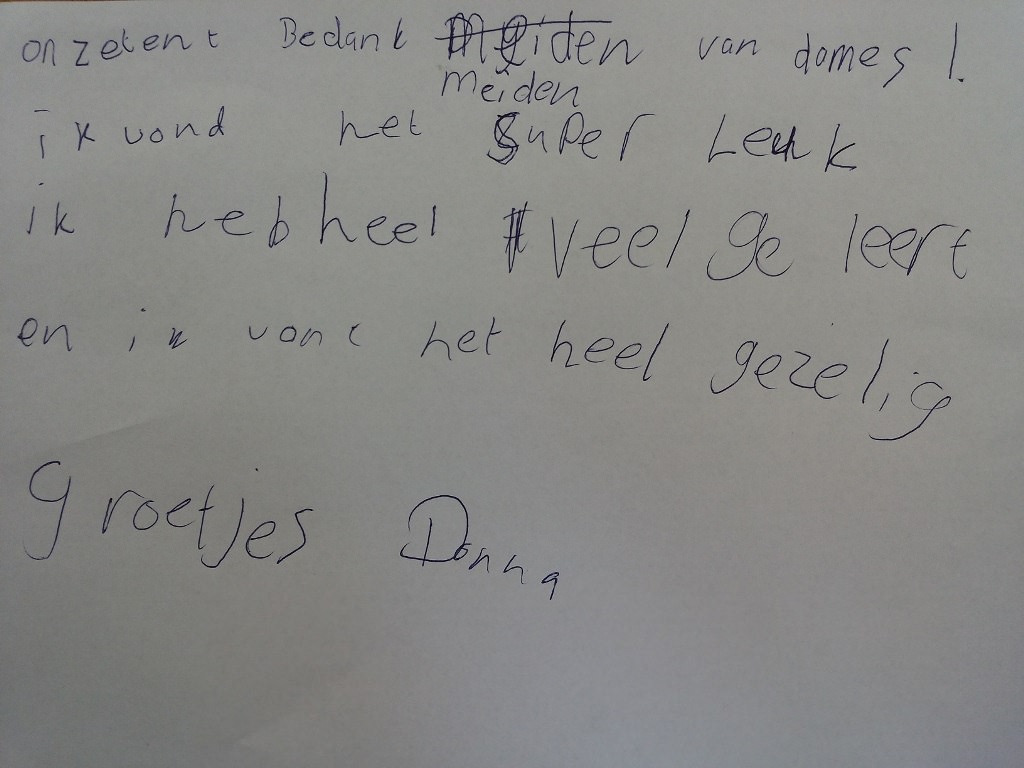 onzetent Bedank meiden van domes!
meiden
ik vond het super Leuk
ik heb heel veel ge leert
en ik vont het heel gezelig
groetjes Donna